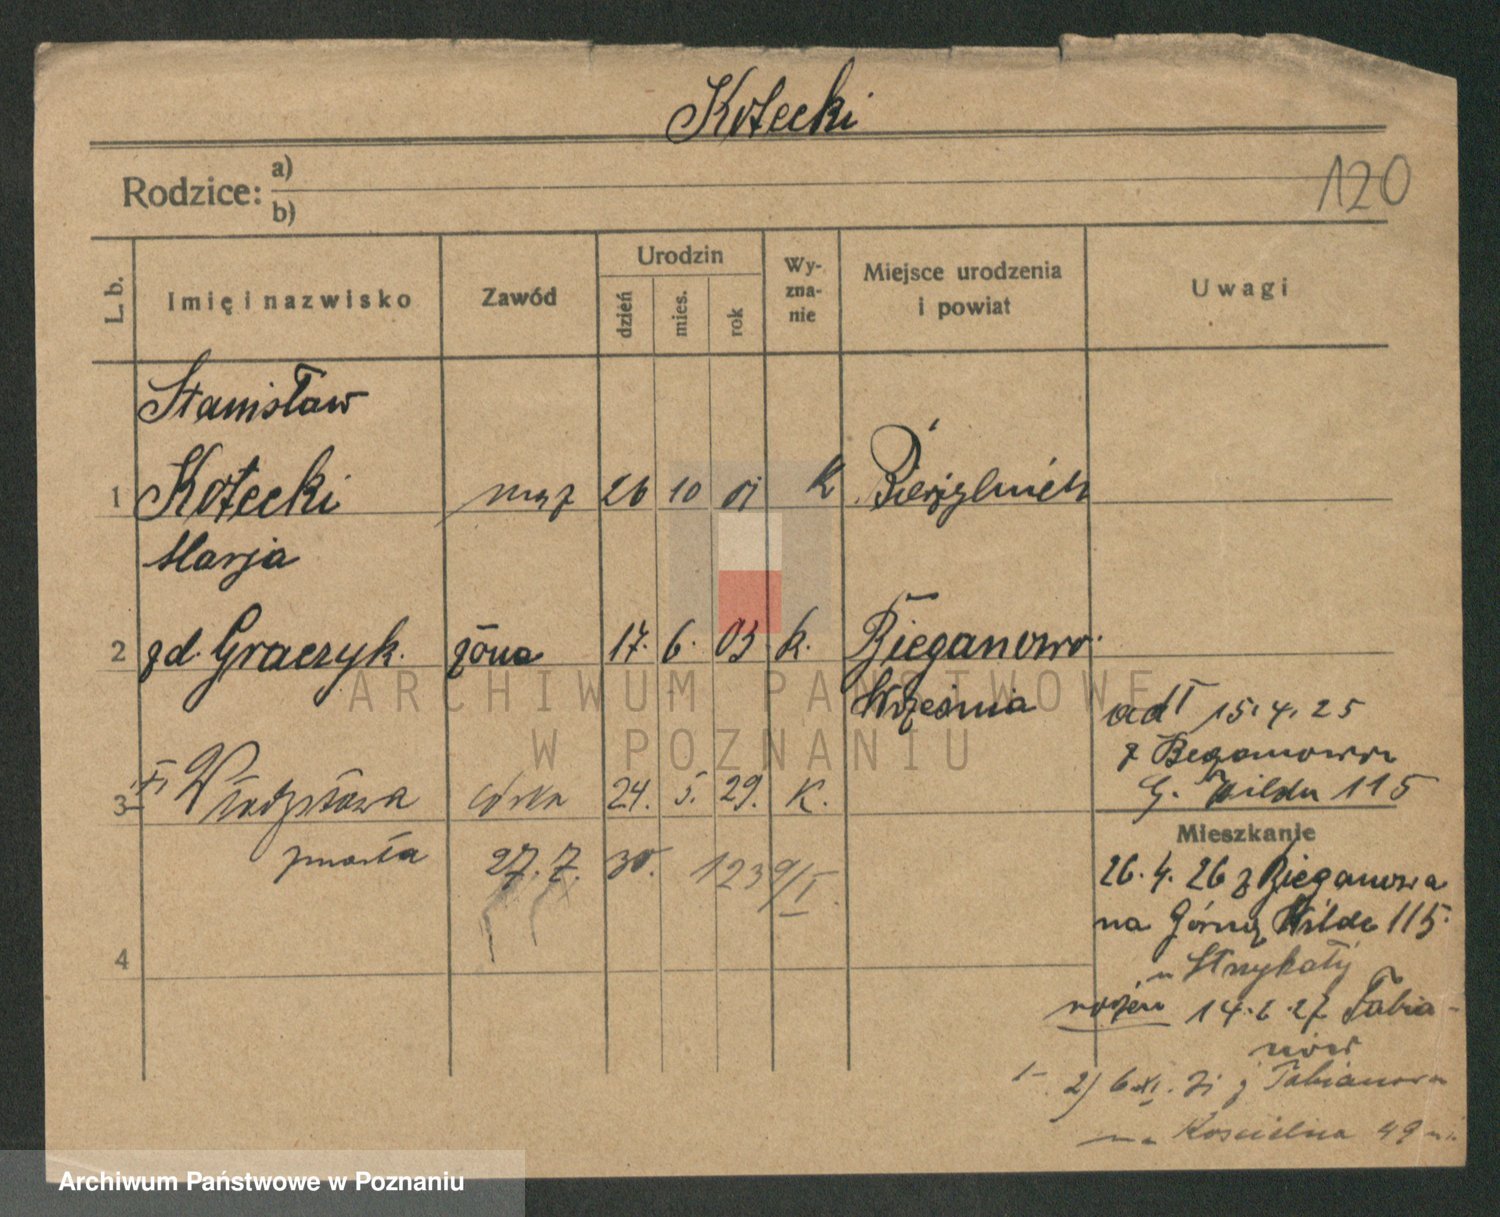 Kotecki
120
Rodzice: a)
b)
L. b.
Imię i nazwisko
Zawód
Urodzin
dzień
mies.
rok
Wy-
zna-
nie
Miejsce urodzenia
i powiat
Uwagi
Stanisław
1 Kotecki mąż 26 10 01 K
Marja
2 zd. Graczyk. żona 17. 6. 03 k. Bieganowo
Września
adł 15.4.25
G. Wilda 115
3 córka 24. 5. 29. K.
zmarła 27. 7. 30. 1239/I
Mieszkanie
26. 4. 26 z Bieganowa
na Górną Wildę 115.
4
14.6.27 Fabia-
nów
2) 6 XI. 31 z Fabianowa
na Kościelna 49
ARCHIWUM PAŃSTWOWE
W POZNANIU
Archiwum Państwowe w Poznaniu